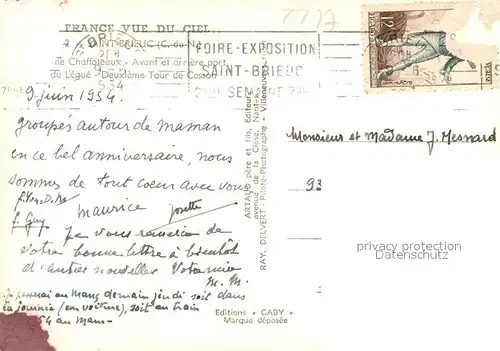 FRANCE VUE DU CIEL...
2 SAINT-BRIEUC (C.-du-N.)
ne Chaffoteaux - Avant et arrière port
du Légué - Deuxième Tour de Cesson
FOIRE-EXPOSITION
SAINT-BRIEUC
SEMAINE
12F
9 juin 1954.
groupés autour de maman
en ce bel anniversaire, nous
sommes de tout coeur avec vous
Maurice Josette
Guy
Je vous remercie de
votre bonne lettre à bientôt
d'autres nouvelles Votre amie
M. M.
Je passerai au Mans demain jeudi soit dans
la journée (en voiture), soit au train
au Mans-
ARTAUD père et fils, Editeurs
avenue de la Close, Nantes
RAY. DELVERT - Pilote-Photographe - Villeneuve
Editions "GABY"
Marque déposée
Monsieur et Madame J. Mesnard
93
privacy protection
Datenschutz